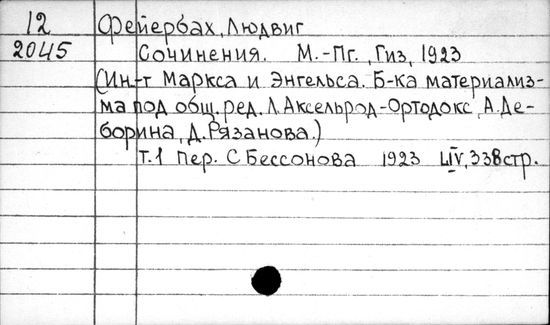 12 Фейербах, Людвиг
2045 Сочинения. М.-Пг., Гиз, 1923
(Ин-т Маркса и Энгельса. Б-ка материализ-
ма под общ. ред. Л. Аксельрод-Ортодокс, А. Де-
борина, Д. Рязанова.)
Т.1 Пер. С Бессонова 1923 LIV, 338 стр.